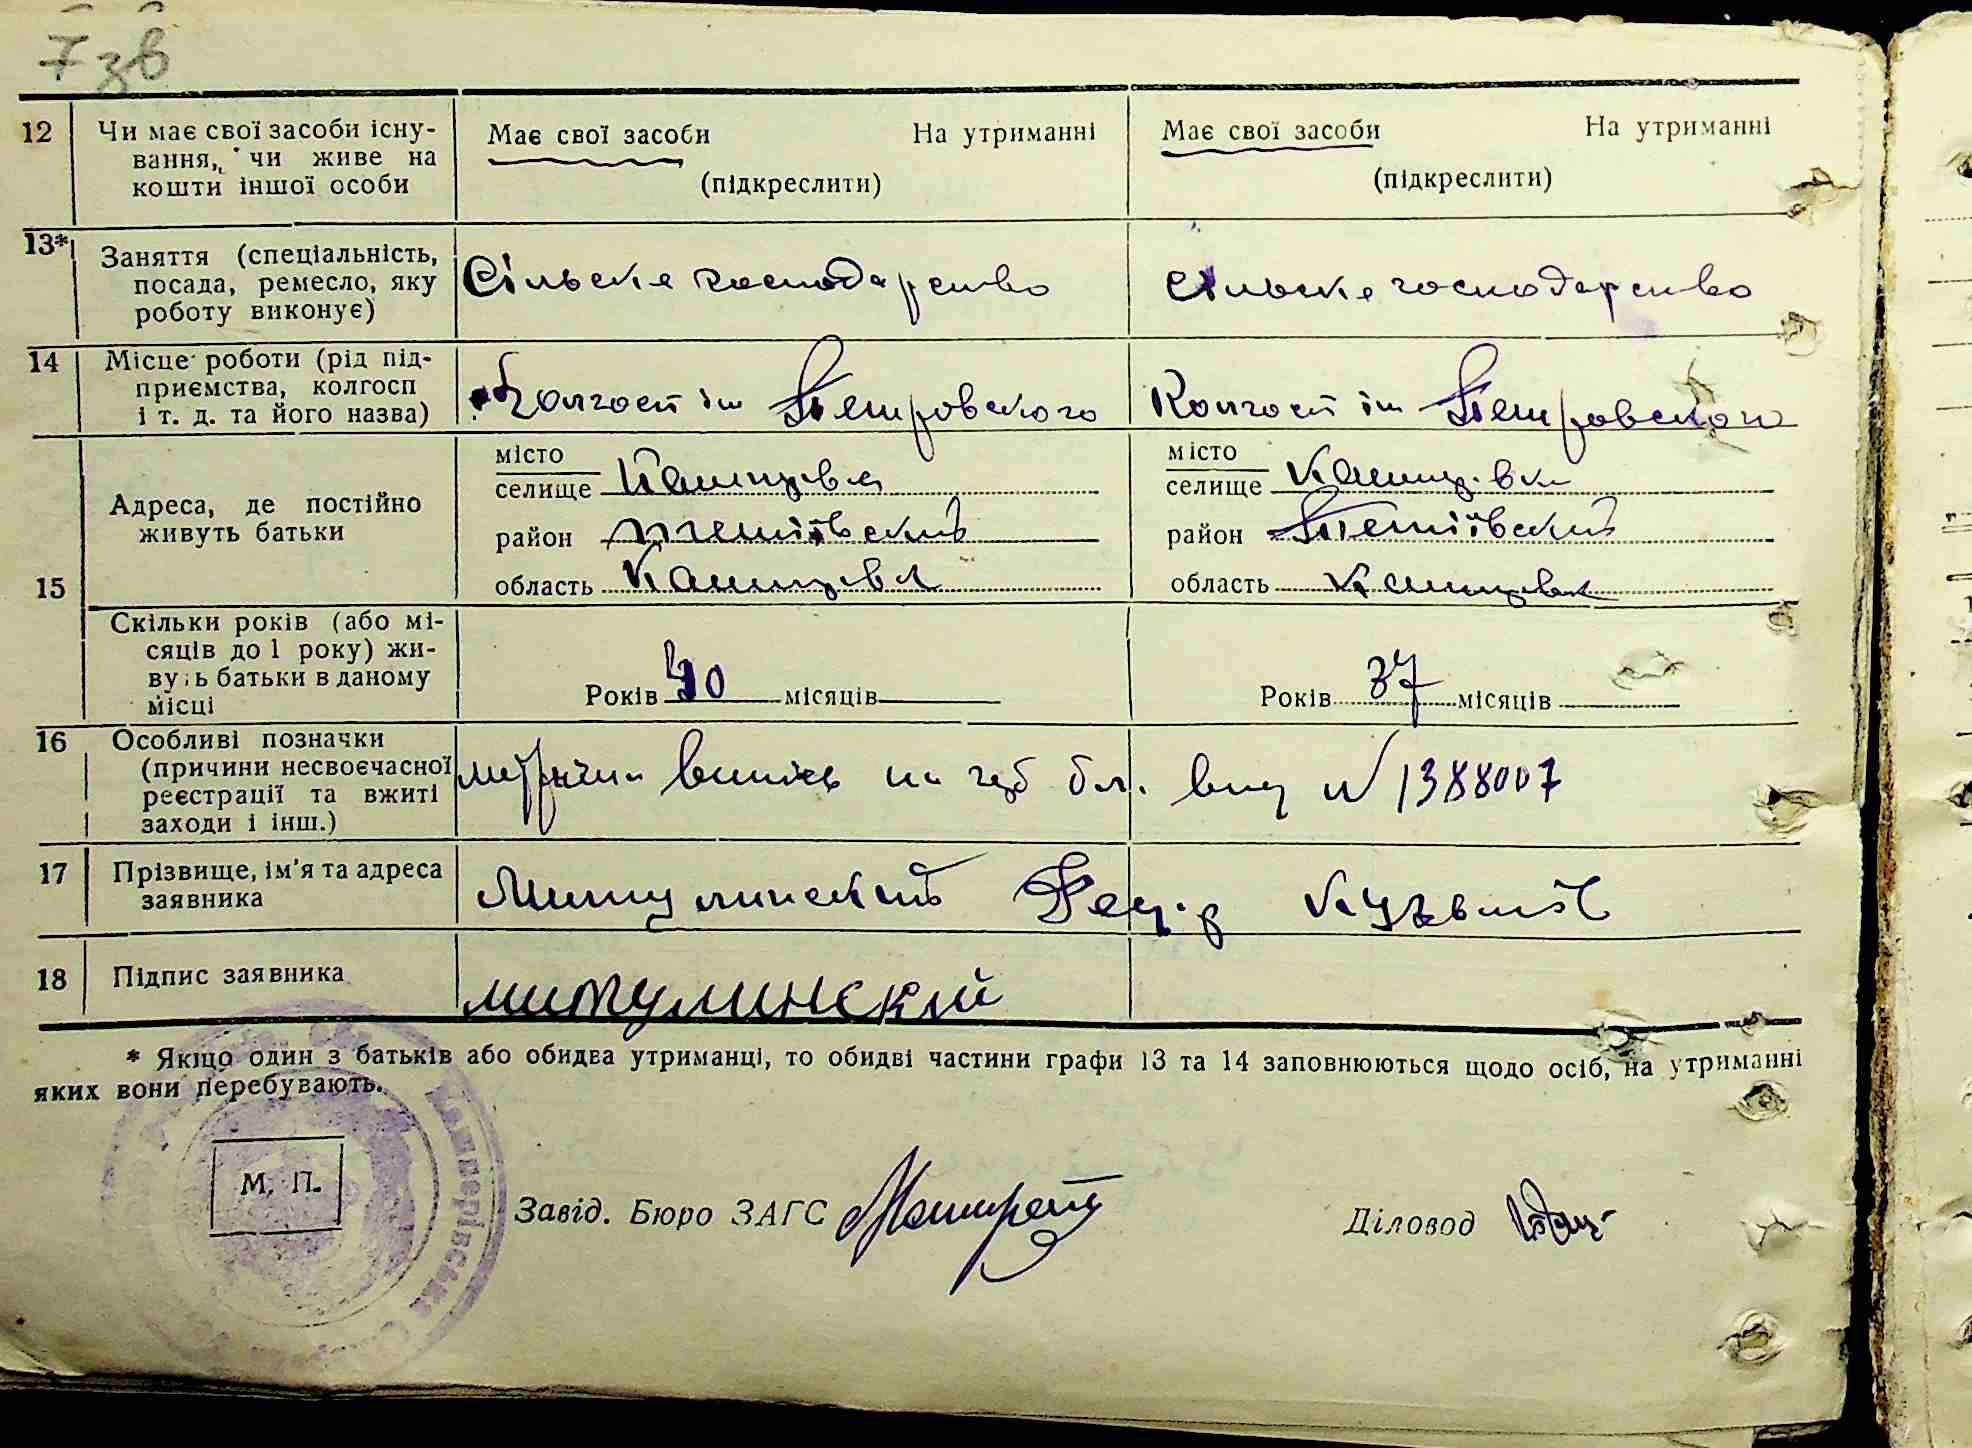 7 зв
12 Чи має свої засоби існу- Має свої засоби На утриманні Має свої засоби На утриманні
вання, чи живе на
кошти іншої особи (підкреслити) (підкреслити)
13* Заняття (спеціальність,
посада, ремесло, яку Сільське господарство сільське господарство
роботу виконує)
14 Місце роботи (рід під-
приємства, колгосп Колгосп ім Петровского Колгосп ім Петровского
і т. д. та його назва)
15 Адреса, де постійно
живуть батьки
місто місто
селище селище
район район
область область
Скільки років (або мі-
сяців до 1 року) жи-
вуть батьки в даному Років 40 місяців Років 37 місяців
місці
16 Особливі позначки
(причини несвоєчасної
реєстрації та вжиті N 1388007
заходи і інш.)
17 Прізвище, ім'я та адреса
заявника Митулинский
18 Підпис заявника митулинский
* Якщо один з батьків або обидва утриманці, то обидві частини графи 13 та 14 заповнюються щодо осіб, на утриманні
яких вони перебувають.
М. П.
Завід. Бюро ЗАГС Діловод